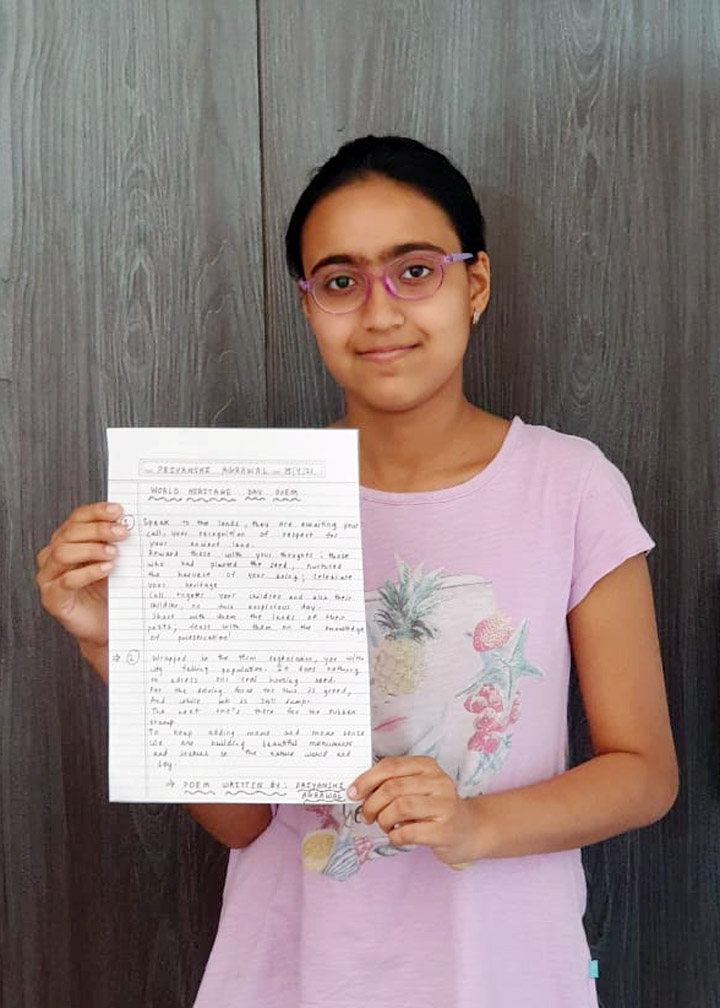 PRIYANSHI AGRAWAL
WORLD HERITAGE DAY POEM
1
Speak to the lands, they are awaiting your
call, your recognition of respect for
your ancient land.
Reward those with your thoughts; those
who had planted the seed, nurtured
the harvest of your being; celebrate
your heritage.
Call your children and also their
children, on this auspicious day.
Share with them the lands of their
pasts; feast with them on the knowledge
of preservation!
⇒ 2
Wrapped be the firm, you
city falling population. It does nothing
to our real housing need.
For the driving force for this is greed,
And while ink is still damp.
The next one's there for the rubber
stamp.
To keep adding more and more sense
We are building beautiful monuments
and in the nature world and
say!
⇒ POEM WRITTEN BY: PRIYANSHI
AGRAWAL